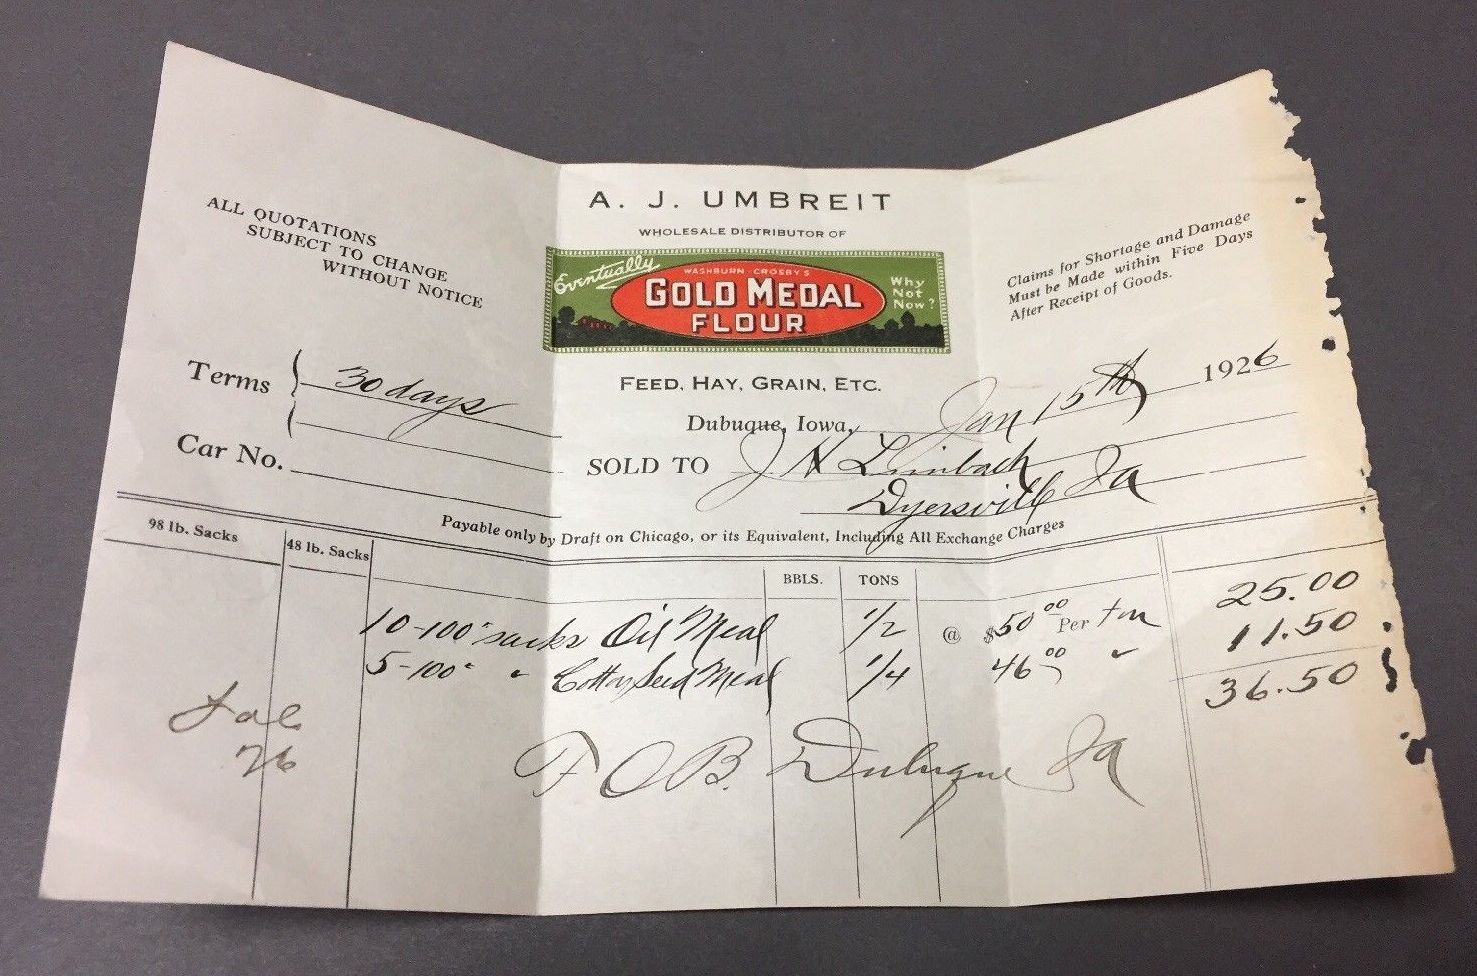 A. J. UMBREIT
WHOLESALE DISTRIBUTOR OF
ALL QUOTATIONS
SUBJECT TO CHANGE
WITHOUT NOTICE
Eventually
WASHBURN-CROSBY'S
GOLD MEDAL
FLOUR
Why
Not
Now?
Claims for Shortage and Damage
Must be Made within Five Days
After Receipt of Goods.
FEED, HAY, GRAIN, ETC.
Terms 30 days
Dubuque, Iowa, Jan 15th 1926
Car No.
SOLD TO J H Limbach
Dyersville Ia
Payable only by Draft on Chicago, or its Equivalent, Including All Exchange Charges
98 lb. Sacks 48 lb. Sacks BBLS. TONS
10-100# sacks Oil Meal 1/2 @ $50 00 Per ton 25.00
5-100# " Cotton Seed Meal 1/4 46 00 " 11.50
36.50
76
F O B. Dubuque Ia